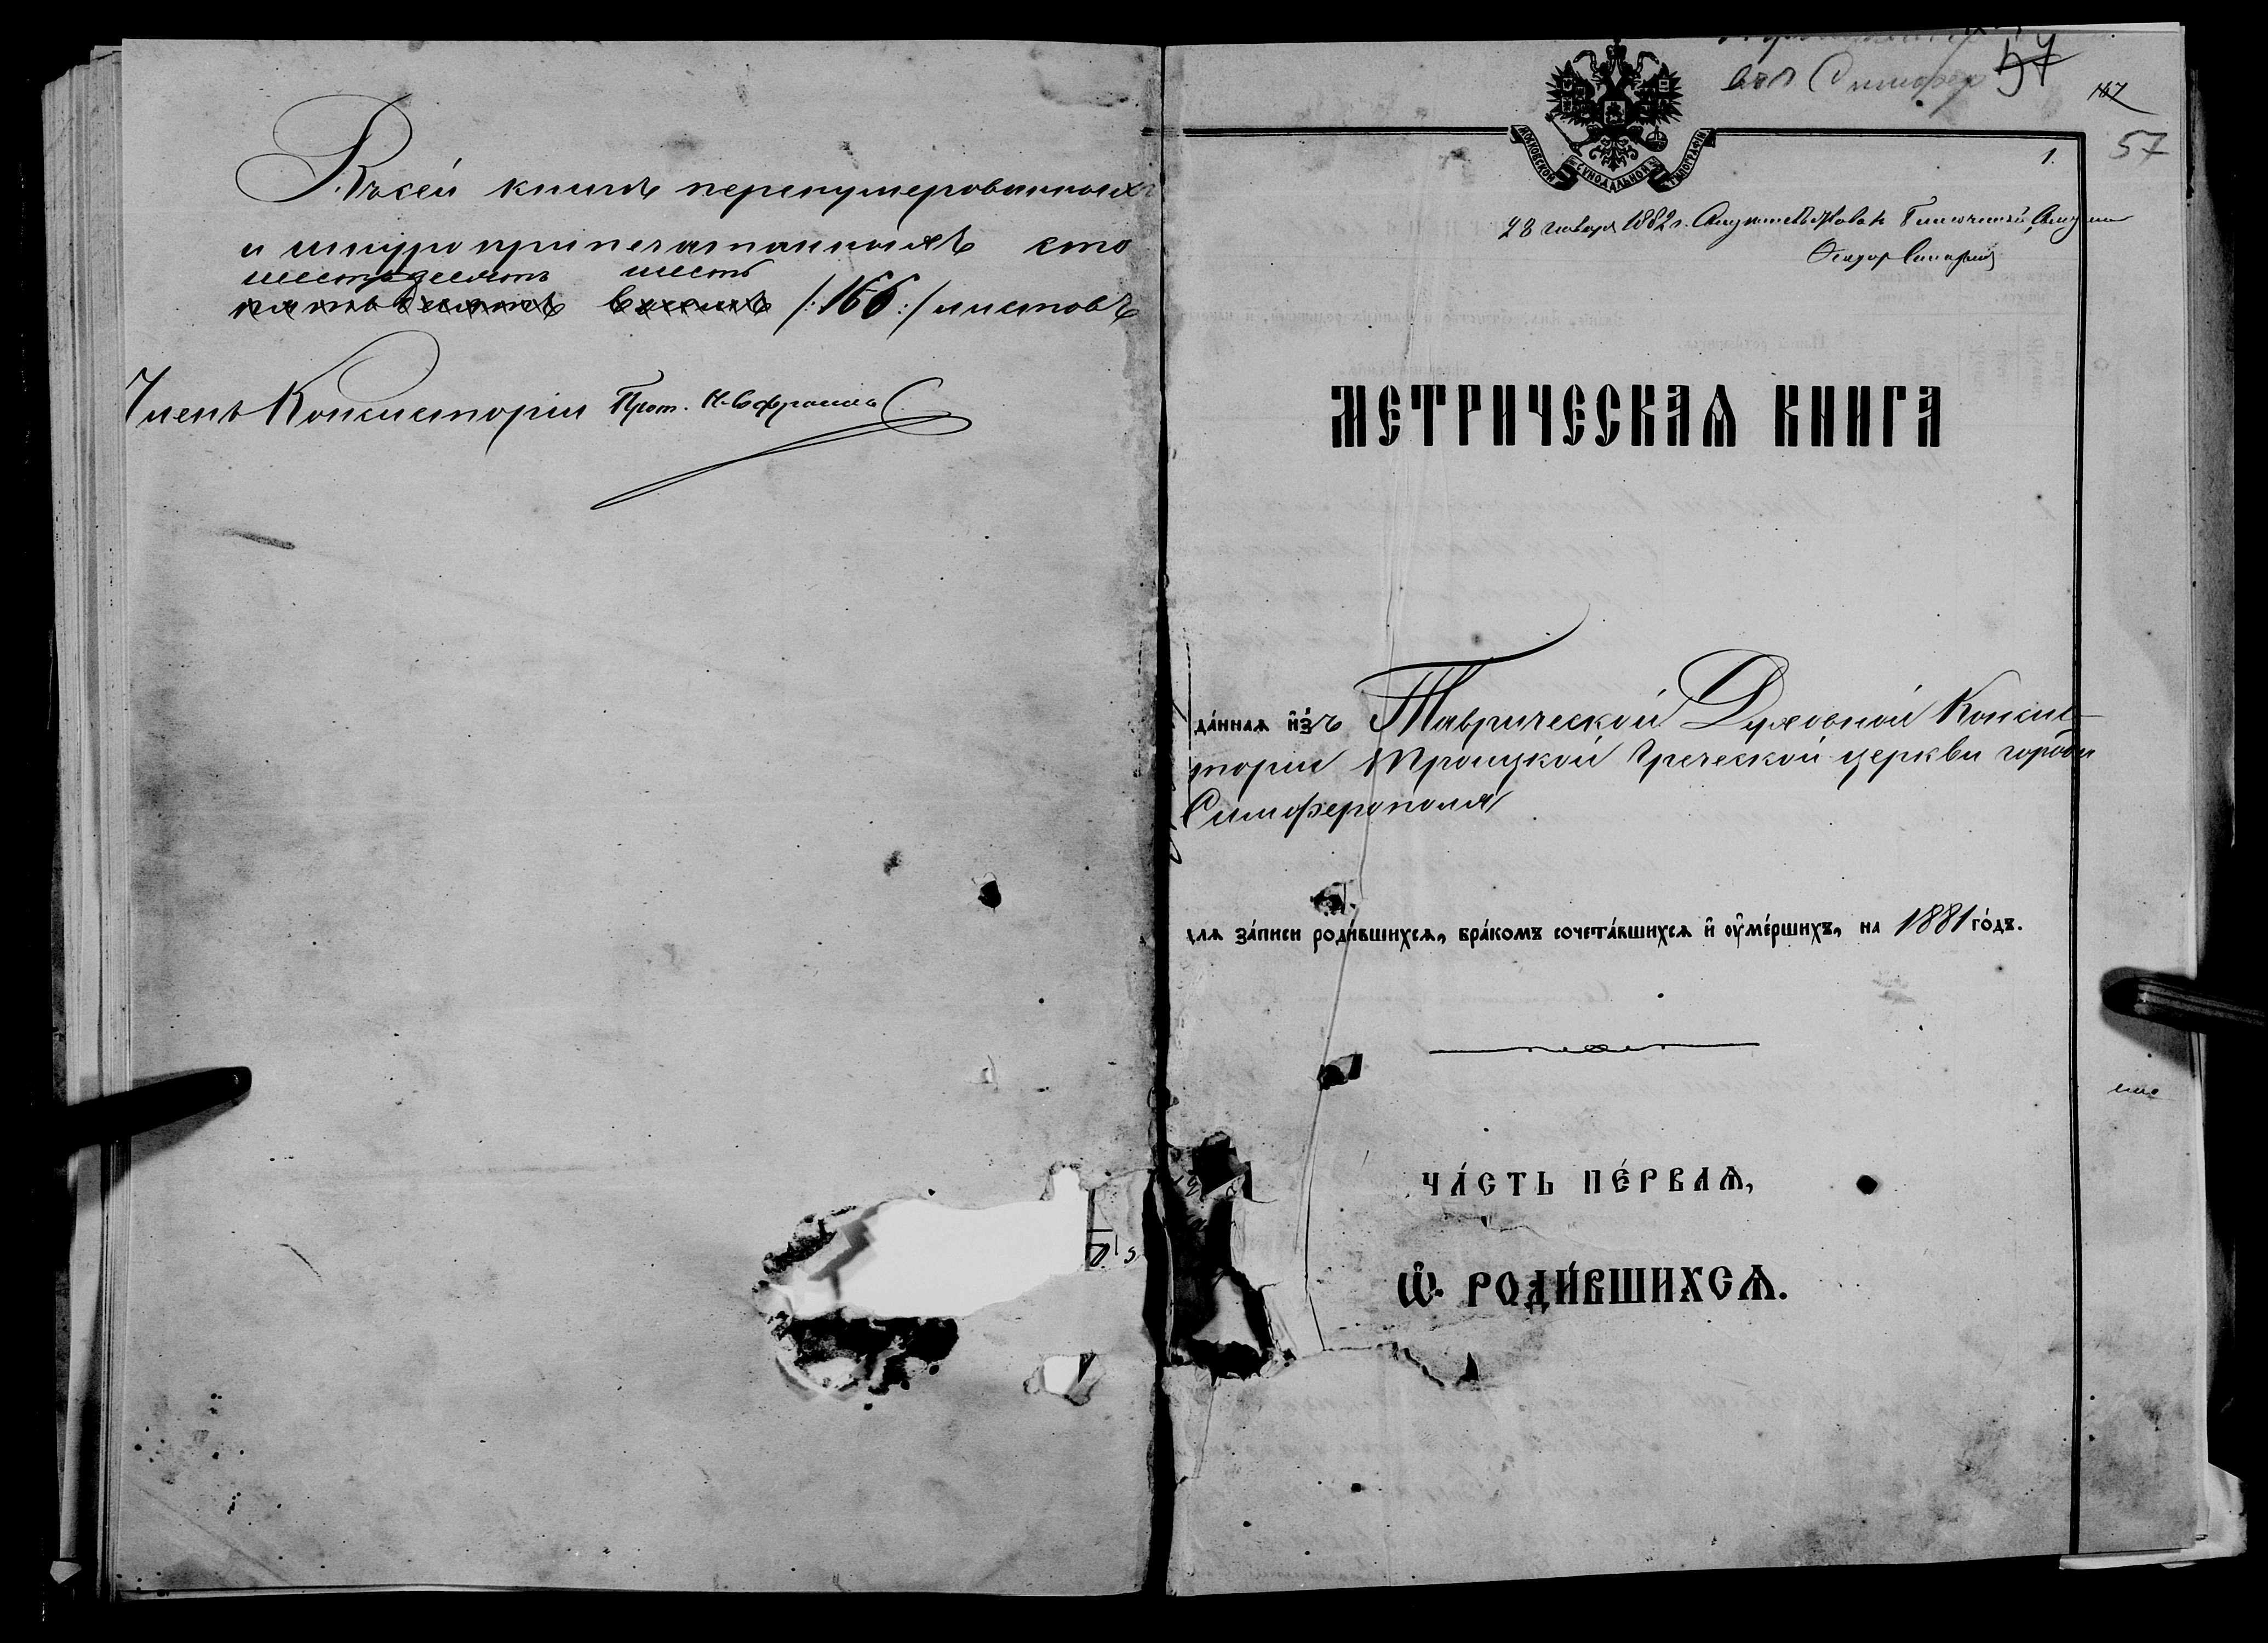 Въ сей книгѣ перенумерованныхъ
и шнуроприпечатанныхъ сто
шестьдесятъ шесть
пятьдесятъ восемь /:166:/ листовъ
Членъ Консисторіи Прот.
57
167
57
1.
МОСКОВСКОЙ СѴНОДАЛЬНОЙ ТИПОГРАФІИ
28 января 1882 г.
МЕТРИЧЕСКАѦ КНИГА
да́ннаѧ и҆́зъ Таврической Духовной Консис-
торіи Троицкой Греческой церкви города
Симферополя
длѧ за́писи роди́вшихсѧ, бра́комъ сочета́вшихсѧ и҆ ᲂу҆ме́ршихъ, на 1881 го́дъ.
ЧА́СТЬ ПЕ́РВАѦ,
Ѡ҆ РОДИ́ВШИХСѦ.